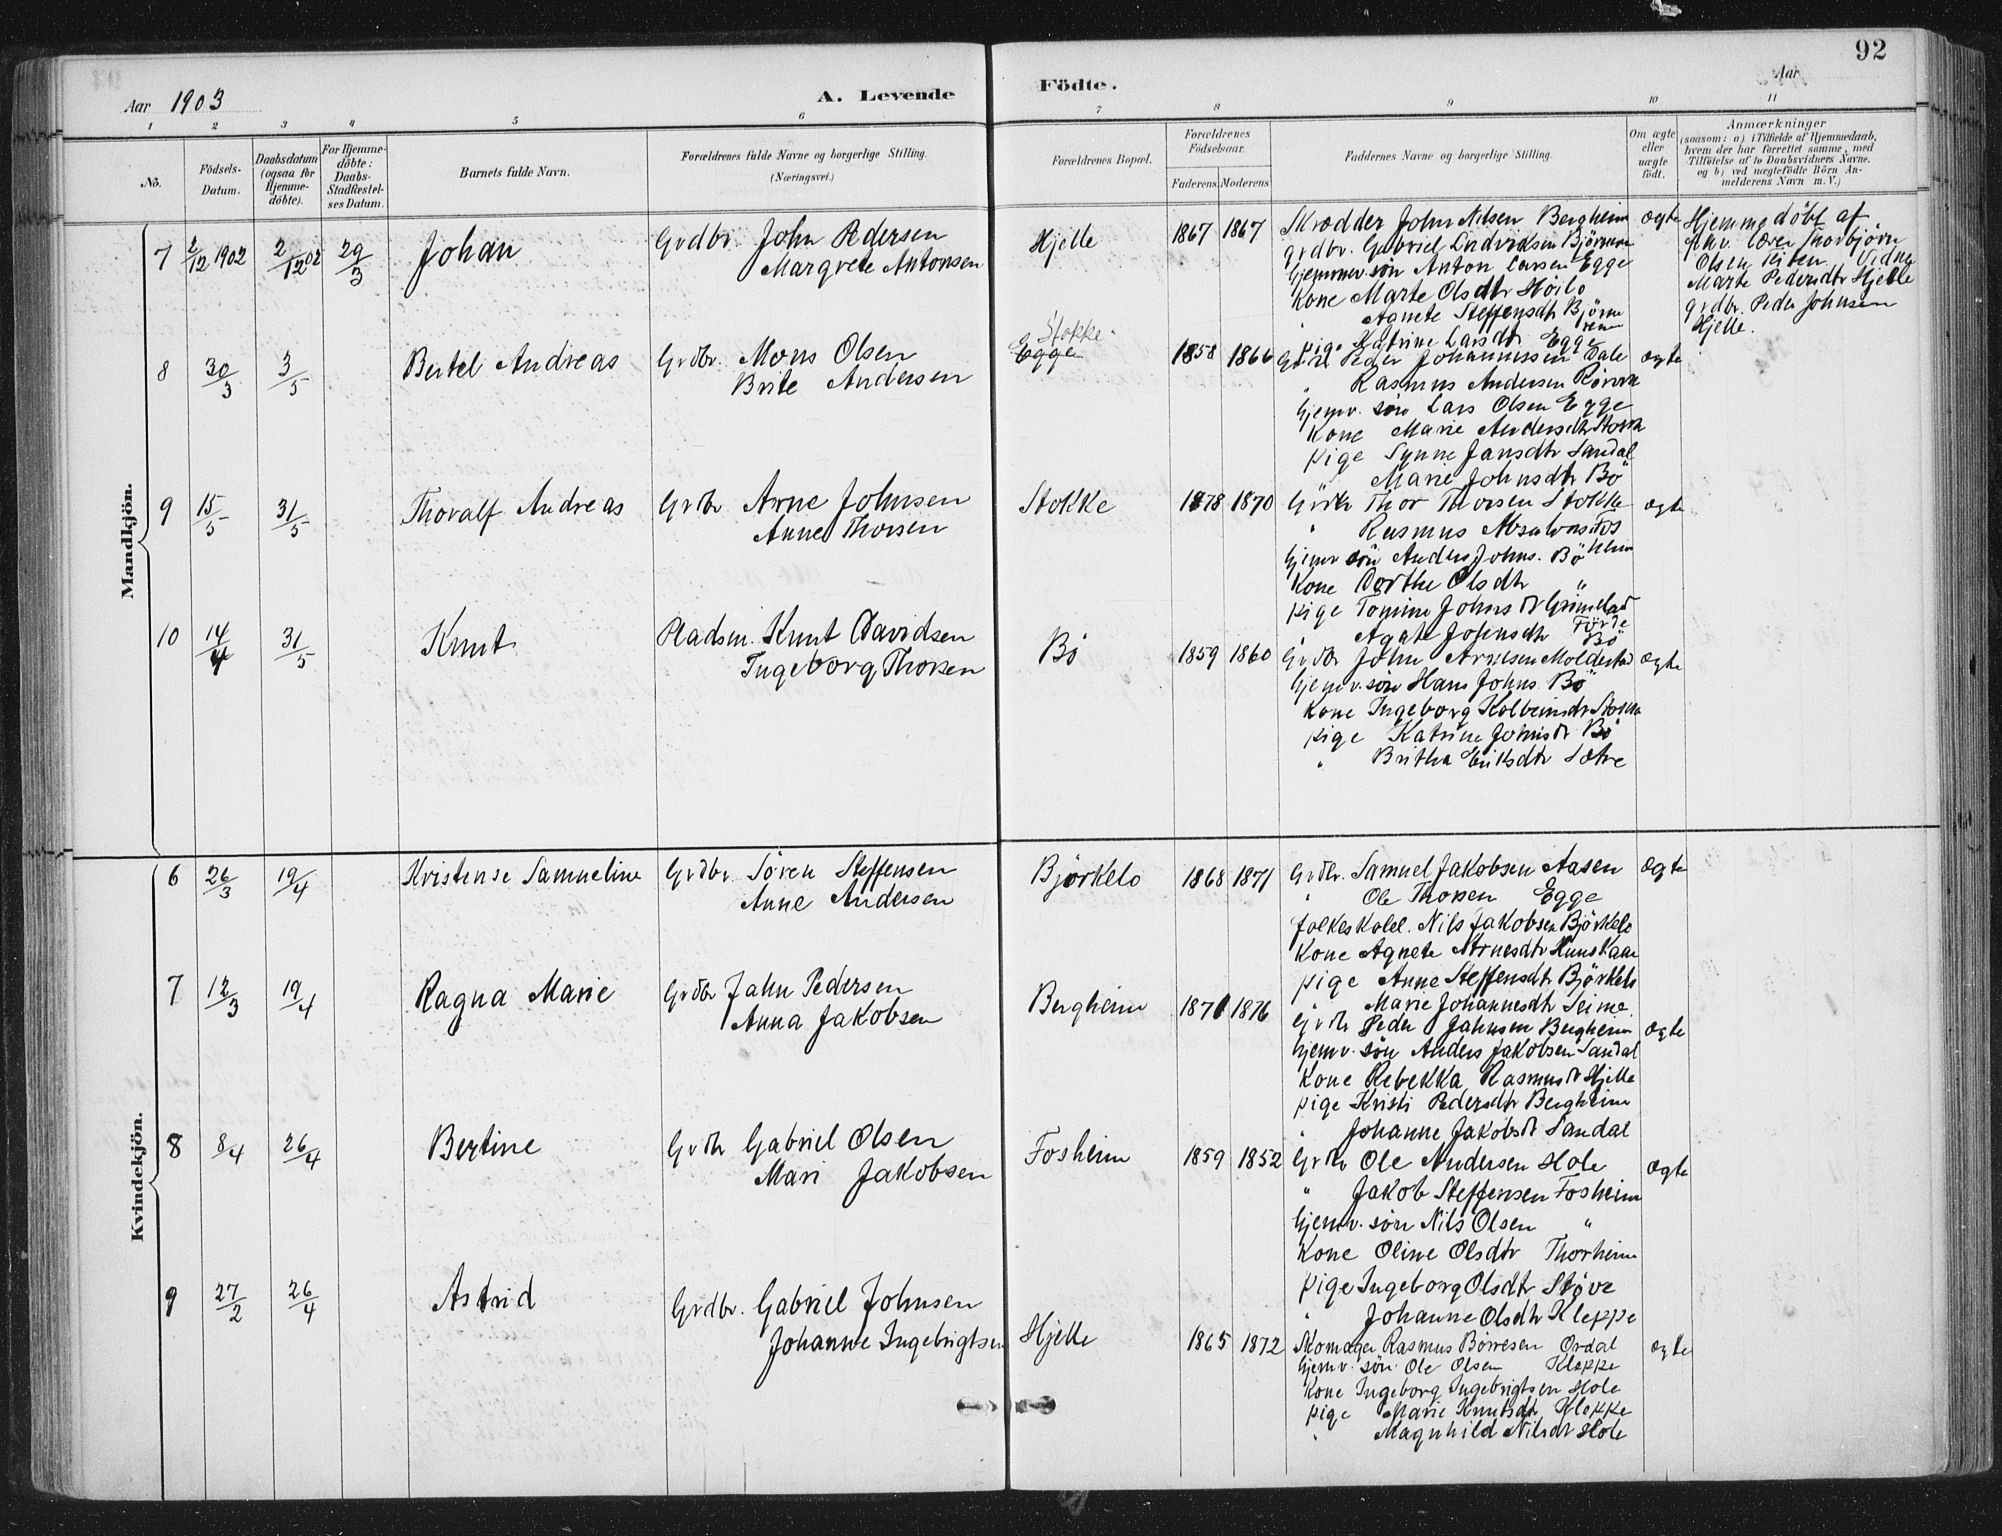 92
Aar 1903 A. Levende Födte. Aar
1 2 3 4 5 6 7 8 9 10 11
No.
Födsels-Datum.
Daabsdatum (ogsaa for Hjemme-döbte).
For Hjemme-döbte: Daabs-Stadfæstel-ses Datum.
Barnets fulde Navn.
Forældrenes fulde Navne og borgerlige Stilling.
(Næringsvei.)
Forældrenes Bopæl.
Forældrenes Födselsaar.
Faderens. Moderens
Faddernes Navne og borgerlige Stilling.
Om ægte eller uægte födt.
Anmærkninger
(saasom: a) i Tilfælde af Hjemmedaab,
hvem der har forrettet samme, med
Tilföielse af to Daabsvidners Navne.
og b) ved uægtefödte Börn An-
melderens Navn m. V.)
Mandkjön.
7 2/12 1902 2/12 02 29/3 Johan Grdbr. John Pedersen
Margrete Antonsen
Hjelle 1867 1867
Skrædder John Nilsen Bergheim
grdbr. Gabriel Ludviksen
hjemmev. søn Anton Larsen Egge
Kone Marte Olsdtr Høilo
" Agnete Steffensdtr Bjørne
pige Katrine Larsdtr Egge
ægte
Hjemmedöbt af
Thorbjørn
Olsen
Marte Pedersdtr Hjelle
grdbr. Peder Johnsen
Hjelle.
8 30/3 3/5 Bertel Andreas Grdbr. Mons Olsen
Brite Andersen
Stokke
Egge 1858 1866
Grdbr Peder Johannessen Dale
" Rasmus Andersen
hjemv. søn Lars Olsen Egge
Kone Marie Andersdtr
pige Synne Jansdtr Sandal
" Marie Johnsdtr Bö
ægte
9 15/5 31/5 Thoralf Andreas Grdbr Arne Johnsen
Anne Thorsen
Stokke 1878 1870
Grdbr Thor Thorsen Stokke
" Rasmus Absalonsen Fos
heim
hjemv søn Anders Johns. Bö
Kone Dorthe Olsdtr "
pige Tomine Johnsdtr Grimelad
Förde
" Agate Johnsdtr Bö
ægte
10 14/4 31/5 Knut Pladsm. Knut Davidsen
Ingeborg Thorsen
Bö 1859 1860
Grdbr John Arnesen Moldestad
hjemv. søn Hans Johns. Bö
Kone Ingeborg Kolbeinsdtr
pige Katrine Johnsdtr Bö
" Britha Eriksdtr Sætre
ægte
Kvindekjön.
6 26/3 19/4 Kristense Samueline Grdbr. Sören Steffensen
Anne Andersen
Björkelo 1868 1871
Grdbr. Samuel Jakobsen Aasen
" Ole Thorsen Egge
folkeskolel. Nils Jakobsen Björkelo
Kone Agnete Arnesdtr Hunskaar
pige Anne Steffensdtr Björkelo
" Marie Johannesdtr Seime
ægte
7 12/3 19/4 Ragna Marie Grdbr John Pedersen
Anna Jakobsen
Bergheim 1871 1876
Grdbr Peder Johnsen Bergheim
hjemv. søn Anders Jakobsen Sandal
Kone Rebekka Rasmusdtr Hjelle
pige Kristi Pedersdtr Bergheim
" Johanne Jakobsdtr Sandal
ægte
8 8/4 26/4 Bertine Grdbr Gabriel Olsen
Mari Jakobsen
Fosheim 1859 1852
Grdbr Ole Andersen Hole
" Jakob Steffensen Fosheim
hjemv. søn Nils Olsen "
Kone Oline Olsdtr Thorheim
pige Ingeborg Olsdtr Støve
" Johanne Olsdtr Kleppe
ægte
9 27/2 26/4 Astrid Grdbr. Gabriel Johnsen
Johanne Ingebrigtsen
Hjelle 1865 1872
Skomager Rasmus Börresen Ordal
hjemv. søn Ole Olsen Kleppe
Kone Ingeborg Ingebrigtsen Hole
pige Marie Knutsdtr Kleppe
" Magnhild Nilsdtr Hole
ægte